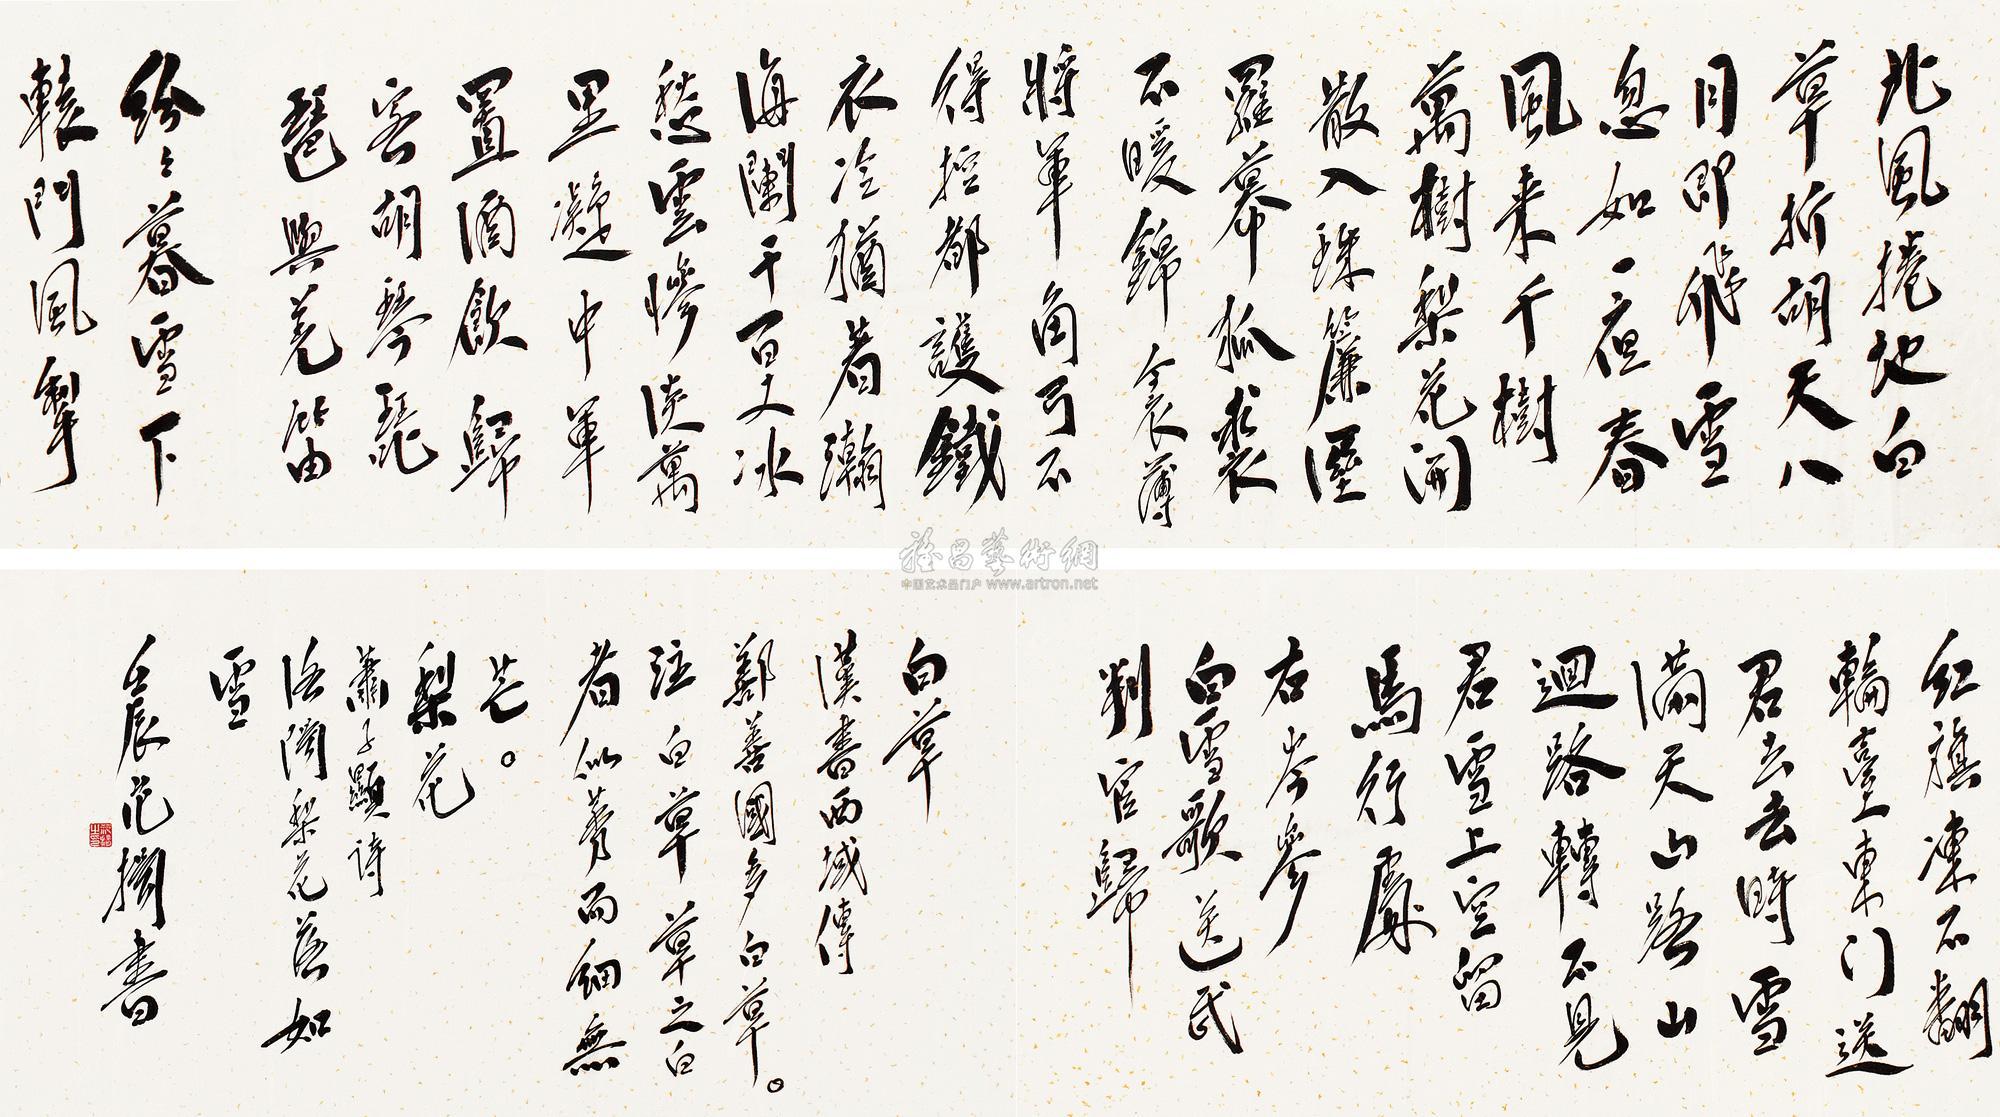 北風捲地白
草折胡天八
月即飛雪
忽如一夜春
風来千樹
萬樹梨花開
散入珠簾溼
羅幕狐裘
不暖錦衾薄
將軍角弓不
得控都護鐵
衣冷猶着瀚
海闌干百丈冰
愁雲慘淡萬
里凝中軍
置酒飲歸
客胡琴琵
琶與羌笛
紛々暮雪下
轅門風掣
紅旗凍不翻
輪臺東门送
君去去時雪
滿天山路山
迴路轉不見
君雪上空留
馬行處
右岑參
白雪歌送武
判官歸
白草
漢書西域傳
鄯善國多白草。
注白草草之白
者似莠而細無
芒。
梨花
蕭子顯詩
洛陽梨花落如
雪
壬辰范書
雅昌藝術網
中国艺术品门户 www.artron.net